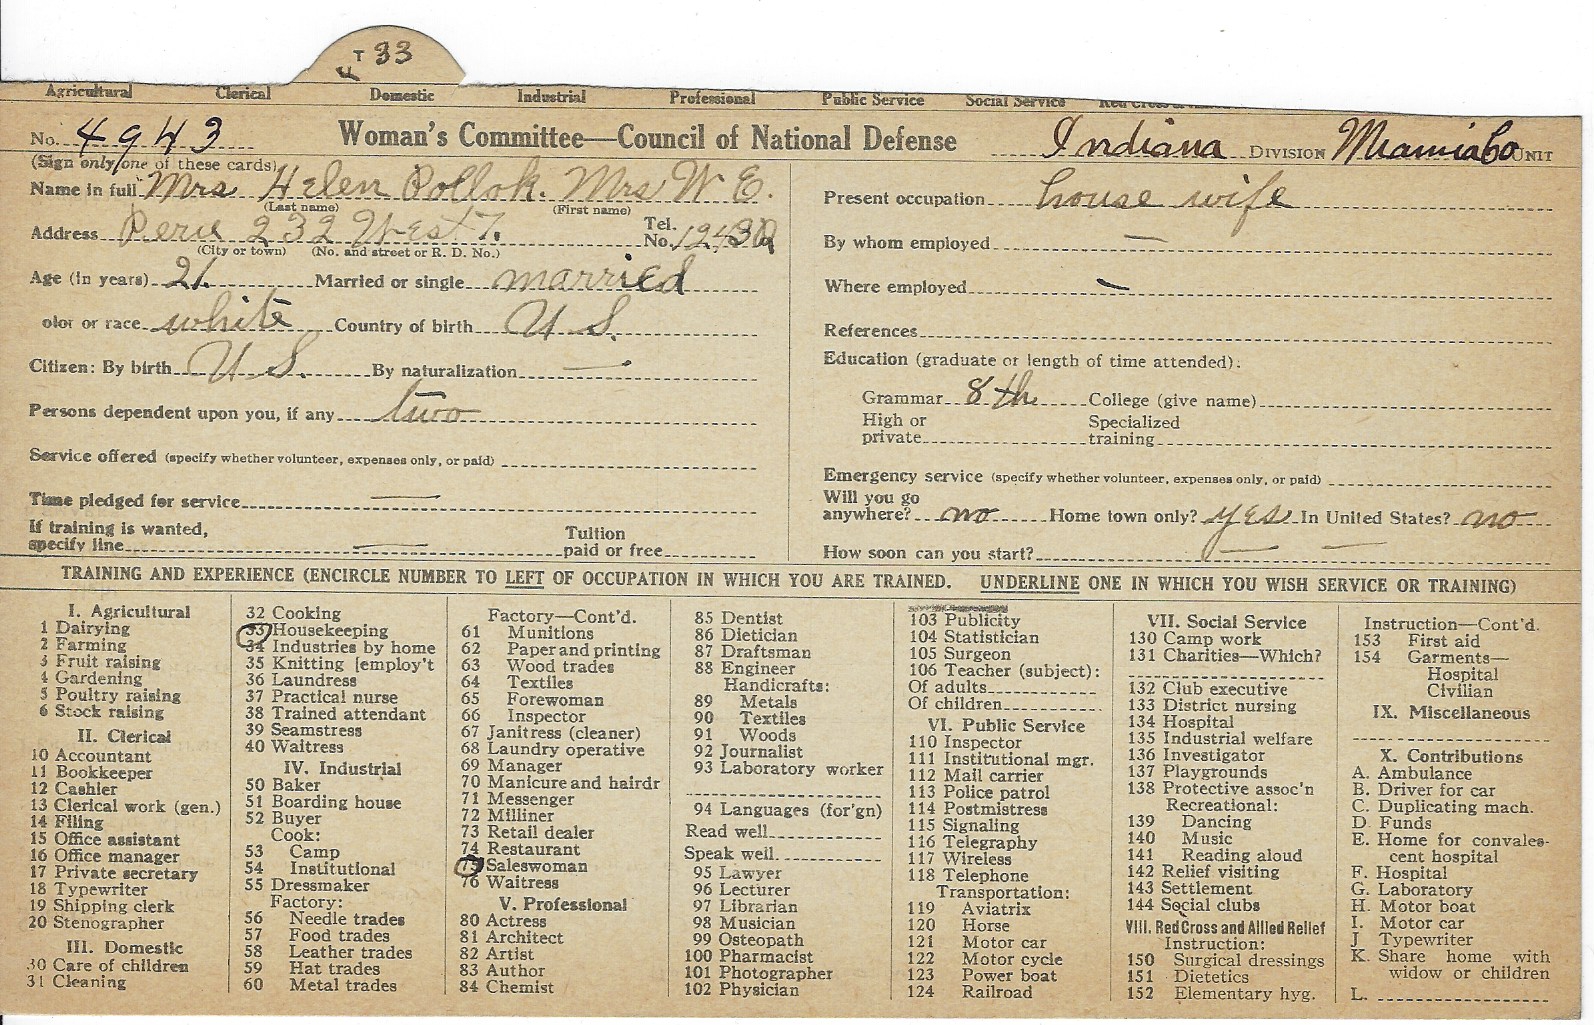 T 33
Agricultural Clerical Domestic Industrial Professional Public Service Social Service
No. 4943 Woman's Committee—Council of National Defense Indiana DIVISION Miami Co UNIT
(Sign only one of these cards)
Name in full Mrs Helen Pollok. Mrs W E.
(Last name) (First name)
Address Peru 232 West 7. Tel. No. 12430
(City or town) (No. and street or R. D. No.)
Age (in years) 21. Married or single married
olor or race white Country of birth U S.
Citizen: By birth U S. By naturalization —
Persons dependent upon you, if any two
Service offered (specify whether volunteer, expenses only, or paid)
Time pledged for service —
If training is wanted,
specify line — Tuition paid or free
Present occupation house wife
By whom employed —
Where employed —
References
Education (graduate or length of time attended):
Grammar 8th College (give name)
High or private Specialized training
Emergency service (specify whether volunteer, expenses only, or paid)
Will you go
anywhere? no Home town only? yes In United States? no
How soon can you start? — —
TRAINING AND EXPERIENCE (ENCIRCLE NUMBER TO LEFT OF OCCUPATION IN WHICH YOU ARE TRAINED. UNDERLINE ONE IN WHICH YOU WISH SERVICE OR TRAINING)
I. Agricultural
1 Dairying
2 Farming
3 Fruit raising
4 Gardening
5 Poultry raising
6 Stock raising
II. Clerical
10 Accountant
11 Bookkeeper
12 Cashier
13 Clerical work (gen.)
14 Filing
15 Office assistant
16 Office manager
17 Private secretary
18 Typewriter
19 Shipping clerk
20 Stenographer
III. Domestic
30 Care of children
31 Cleaning
32 Cooking
33 Housekeeping
34 Industries by home
35 Knitting [employ't
36 Laundress
37 Practical nurse
38 Trained attendant
39 Seamstress
40 Waitress
IV. Industrial
50 Baker
51 Boarding house
52 Buyer
Cook:
53 Camp
54 Institutional
55 Dressmaker
Factory:
56 Needle trades
57 Food trades
58 Leather trades
59 Hat trades
60 Metal trades
Factory—Cont'd.
61 Munitions
62 Paper and printing
63 Wood trades
64 Textiles
65 Forewoman
66 Inspector
67 Janitress (cleaner)
68 Laundry operative
69 Manager
70 Manicure and hairdr
71 Messenger
72 Milliner
73 Retail dealer
74 Restaurant
75 Saleswoman
76 Waitress
V. Professional
80 Actress
81 Architect
82 Artist
83 Author
84 Chemist
85 Dentist
86 Dietician
87 Draftsman
88 Engineer
Handicrafts:
89 Metals
90 Textiles
91 Woods
92 Journalist
93 Laboratory worker
94 Languages (for'gn)
Read well
Speak well
95 Lawyer
96 Lecturer
97 Librarian
98 Musician
99 Osteopath
100 Pharmacist
101 Photographer
102 Physician
103 Publicity
104 Statistician
105 Surgeon
106 Teacher (subject):
Of adults
Of children
VI. Public Service
110 Inspector
111 Institutional mgr.
112 Mail carrier
113 Police patrol
114 Postmistress
115 Signaling
116 Telegraphy
117 Wireless
118 Telephone
Transportation:
119 Aviatrix
120 Horse
121 Motor car
122 Motor cycle
123 Power boat
124 Railroad
VII. Social Service
130 Camp work
131 Charities—Which?
132 Club executive
133 District nursing
134 Hospital
135 Industrial welfare
136 Investigator
137 Playgrounds
138 Protective assoc'n
Recreational:
139 Dancing
140 Music
141 Reading aloud
142 Relief visiting
143 Settlement
144 Social clubs
VIII. Red Cross and Allied Relief
Instruction:
150 Surgical dressings
151 Dietetics
152 Elementary hyg.
Instruction—Cont'd.
153 First aid
154 Garments—
Hospital
Civilian
IX. Miscellaneous
X. Contributions
A. Ambulance
B. Driver for car
C. Duplicating mach.
D. Funds
E. Home for convales-
cent hospital
F. Hospital
G. Laboratory
H. Motor boat
I. Motor car
J Typewriter
K. Share home with
widow or children
L.